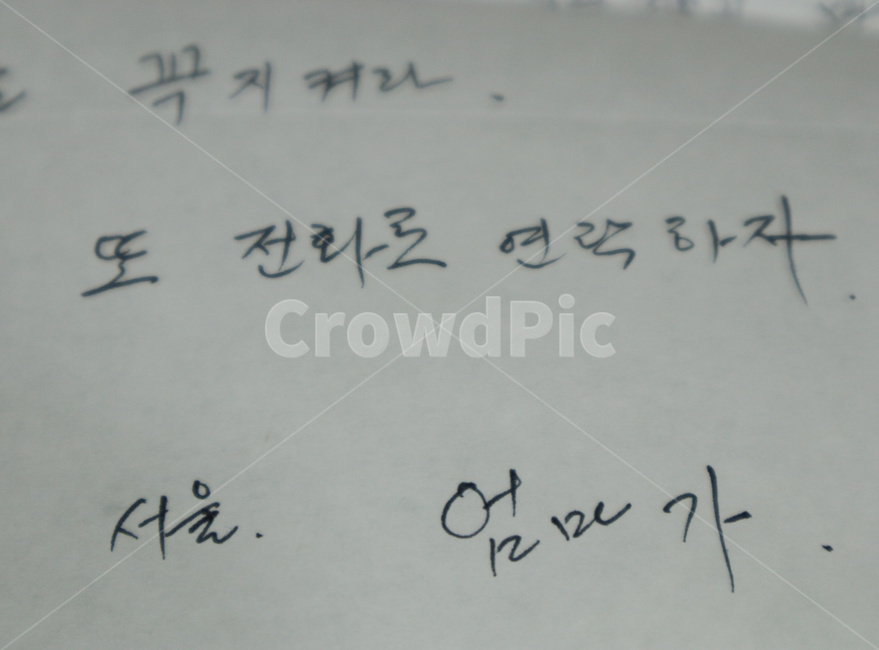 꼭 지켜라.
또 전화로 연락하자.
CrowdPic
서울. 엄마가.